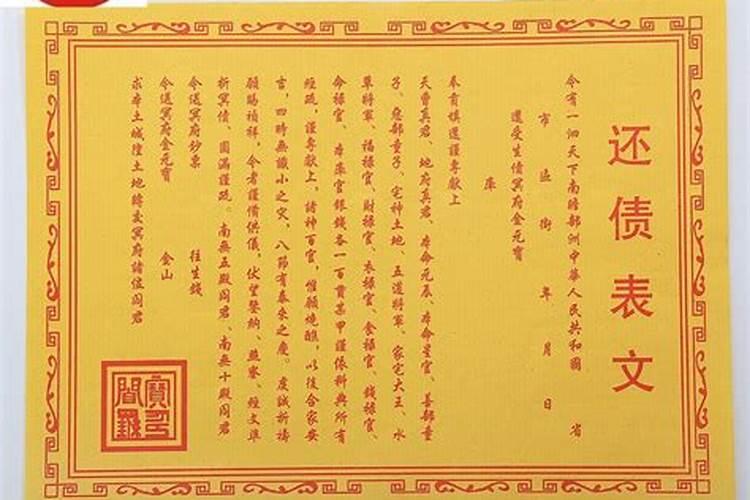 还债表文
今有一泗天下南瞻部洲中華人民共和國 省
市 區 街 年 月 日
還受生債冥府金元寶
庫
奉有填還謹專献上
天曹真君、地府真君、本命元辰、本命星官、善部童
子、惡部童子、宅神土地、五道將軍、家宅大王、水
草將軍、福禄官、財禄官、衣禄官、食禄官、錢禄官、
命禄官、本庫官銀錢各一百貫某甲謹依科典所有
經疏，謹專献上，諸神百官，惟願燒醮，以後合家安
吉，四時無讖小之灾，八節有泰來之慶。虔誠祈禱
願賜禎祥，今者謹備供儀，伏望鑒納、燕寮、經文準
折冥債、圆滿謹疏。南無五殿阎君、南無十殿阎君
今送冥府鈔票 往生錢
今送冥府金元寳 金山
求本土城隍土地轉交冥府諸位阎君